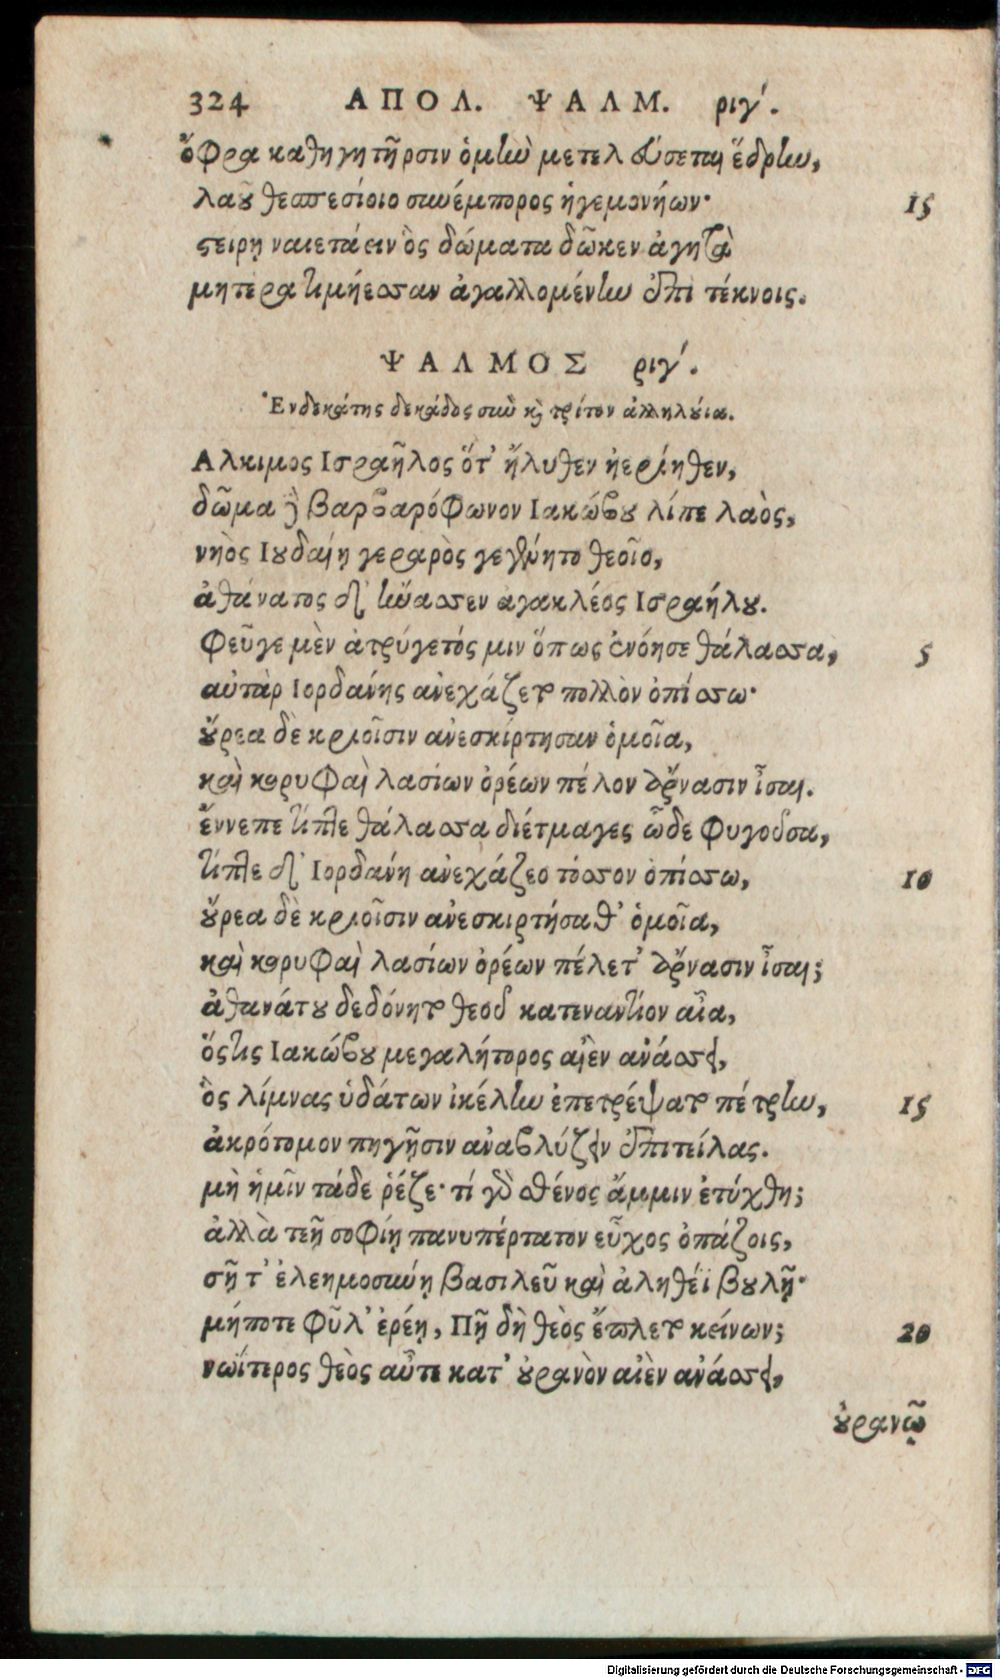 324 ΑΠΟΛ. ΨΑΛΜ. ριγ´.
ὄφρα καθηγητῆρσιν ὁμὴν μετελεύσεται ἕδρην,
λαοῦ θεσπεσίοιο συνέμπορος ἡγεμονήων· 15
στείρῃ ναιετάειν ὃς δώματα δῶκεν ἀγητὰ
μητέρα τιμήεσσαν ἀγαλλομένην ἐπὶ τέκνοις.
ΨΑΛΜΟΣ ριγ´.
Ἑνδεκάτης δεκάδος σὺν καὶ τρίτον ἀλληλούια.
Αλκιμος Ισραῆλος ὅτ' ἤλυθεν ἠερίηθεν,
δῶμα δὲ βαρβαρόφωνον Ιακώβου λίπε λαὸς,
νηὸς Ιουδαίη γεραρὸς γεγένητο θεοῖο,
ἀθάνατος δ' ἤνασσεν ἀγακλέος Ισραήλου.
φεῦγε μὲν ἀτρύγετός μιν ὅπως ἐνόησε θάλασσα, 5
αὐτὰρ Ιορδάνης ἀνεχάζετο πολλὸν ὀπίσσω·
οὔρεα δὲ κριοῖσιν ἀνεσκίρτησαν ὁμοῖα,
καὶ κορυφαὶ λασίων ὀρέων πέλον ἄρνασιν ἶσαι.
ἔννεπε τίπτε θάλασσα διέτμαγες ὧδε φυγοῦσα,
τίπτε δ' Ιορδάνη ἀνεχάζεο τόσσον ὀπίσσω, 10
οὔρεα δὲ κριοῖσιν ἀνεσκιρτήσαθ' ὁμοῖα,
καὶ κορυφαὶ λασίων ὀρέων πέλετ' ἄρνασιν ἶσαι;
ἀθανάτου δεδόνητο θεοῦ κατεναντίον αἶα,
ὅστις Ιακώβου μεγαλήτορος αἰὲν ἀνάσσει,
ὃς λίμνας ὑδάτων ἰκέλην ἐπετρέψατο πέτρην, 15
ἀκρότομον πηγῇσιν ἀναβλύζειν ἐπιτείλας.
μὴ ἡμῖν τάδε ῥέζε· τί γὰρ σθένος ἄμμιν ἐτύχθη;
ἀλλὰ τεῇ σοφίῃ πανυπέρτατον εὖχος ὀπάζοις,
σῇ τ' ἐλεημοσύνῃ βασιλεῦ καὶ ἀληθέϊ βουλῇ·
μήποτε φῦλ' ἐρέῃ, Πῇ δὴ θεὸς ἔπλετο κείνων; 20
νωΐτερος θεὸς αὖτε κατ' οὐρανὸν αἰὲν ἀνάσσει,
οὐρανῷ
Digitalisierung gefördert durch die Deutsche Forschungsgemeinschaft - DFG